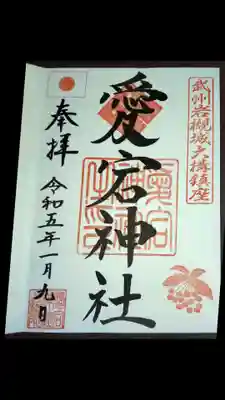 武州岩槻城大構鎮座
愛宕神社
奉拝
令和五年一月九日